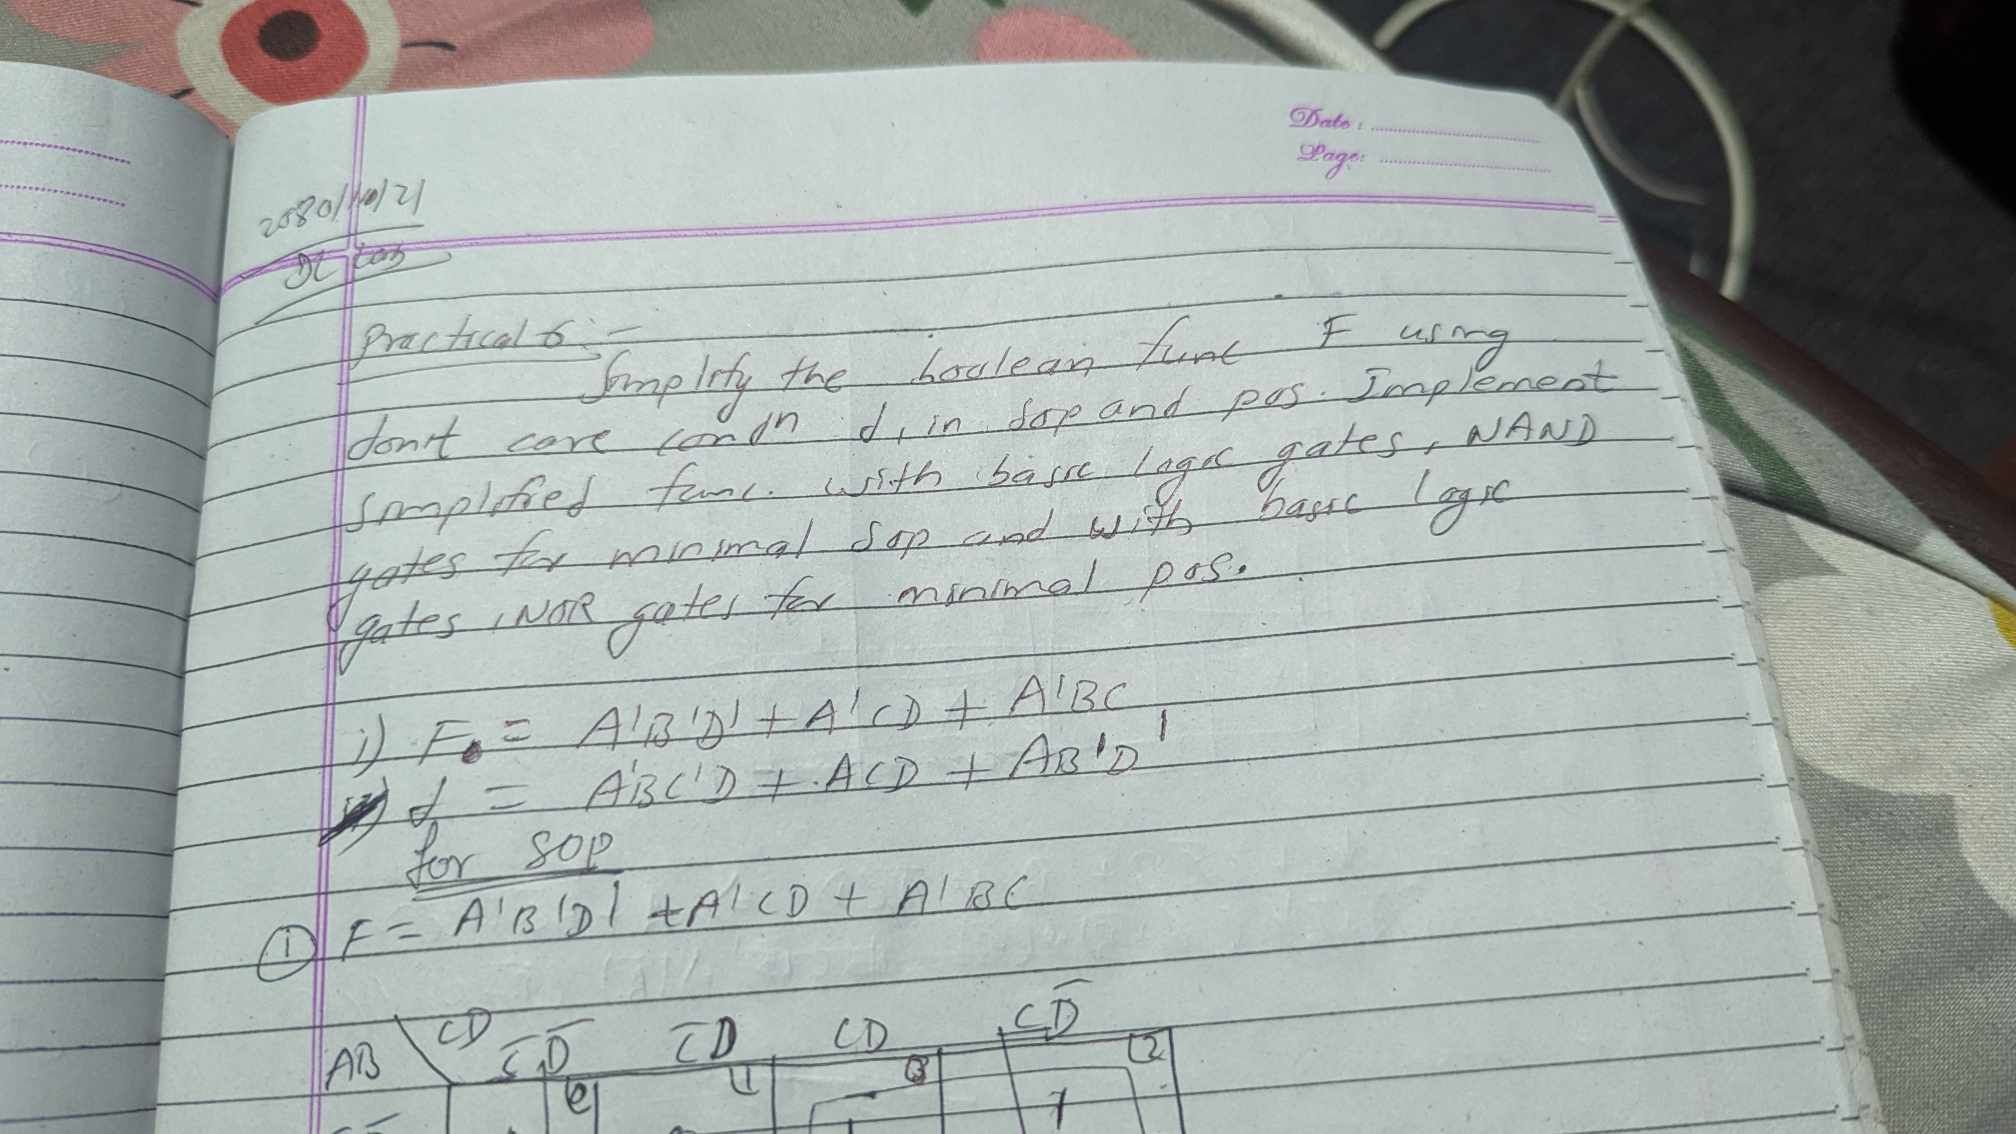 Date:
Page:
2080/10/21
DL Lab
Practical 6:-
Simplify the boolean func F using
don't care condn d, in Sop and pos. Implement
simplified func. with basic logic gates, NAND
gates for minimal Sop and with basic logic
gates, NOR gates for minimal pos.
i) F = A'B'D' + A'CD + A'BC
d = A'BC'D + ACD + AB'D'
for SOP
① F = A'B'D' + A'CD + A'BC
AB CD C̅D̅ C̅D CD CD̅
0 1 3 2
1